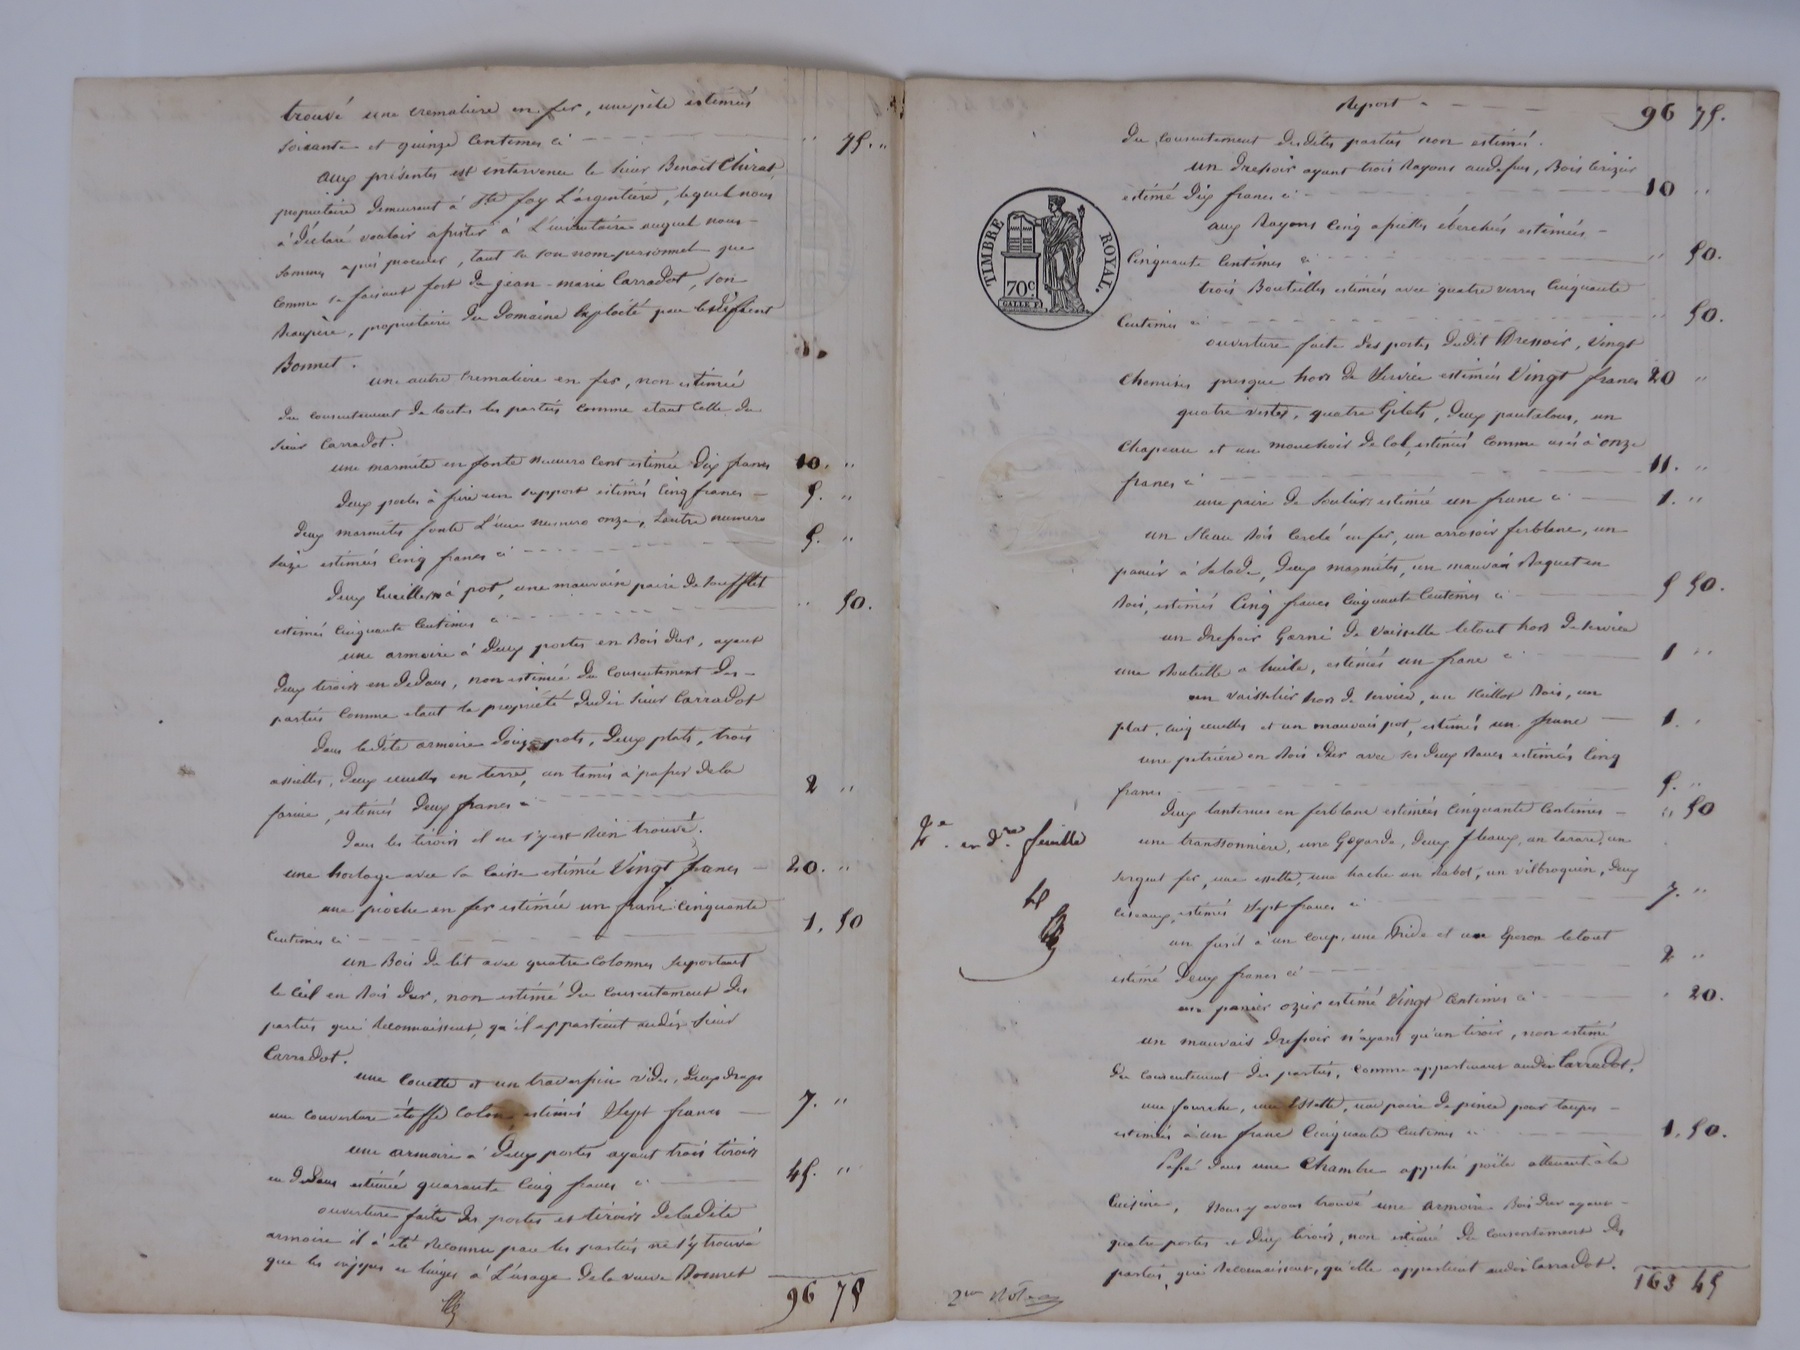 trouvé une cremaliere en fer, une pèle estimés
soixante et quinze centimes ci " 75. "
aux présentes est intervenu le sieur Benoit Chirat
propriétaire demeurant à Ste foy L'argentière, lequel nous
a déclaré vouloir assister à L'inventaire auquel nous
sommes après proceder, tant en son nom personnel que
comme se faisant fort de jean-marie Carradot, son
beaupère, proprietaire du domaine Exploité par le défunt
Bonnet.
une autre cremaliere en fer, non estimée
du consentement de toutes les parties comme etant celle du
sieur Carradot.
une marmite en fonte numero cent estimée dix francs 10. "
deux poeles à frire un support estimés cinq francs 5. "
deux marmites fonte L'une numero onze, Lautre numero
seize estimés cinq francs ci 5. "
deux cuillers à pot, une mauvaise paire de soufflet
estimés cinquante centimes ci " 50.
une armoire à deux portes en Bois dur, ayant
deux tiroirs en dedans, non estimée du consentement des
parties comme etant la propriété dudit sieur Carradot
dans ladite armoire pots, deux plats, trois
assiettes, deux ecuelles en terre, un tamis à passer de la
farine, estimés deux francs ci 2 "
dans les tiroirs il ne s'y est rien trouvé.
une horloge avec sa caisse estimée Vingt francs 20. "
une pioche en fer estimée un franc cinquante
centimes ci 1. 50
un Bois de lit avec quatre colonnes suportant
le ciel en bois dur, non estimé du consentement des
parties qui reconnaissent qu'il appartient audit sieur
Carradot.
une couette et un traversin vides, deux draps
une couverture étoffe coton estimés sept francs 7. "
une armoire à deux portes ayant trois tiroirs
en dedans estimée quarante cinq francs ci 45. "
ouverture faite des portes et tiroirs de ladite
armoire il a été reconnu par les parties ne s'y trouvé
que les nippes et linges à L'usage de la veuve Bonnet
96 75
Report 96 75.
du consentement desdites parties non estimés.
un dressoir ayant trois rayons au dessus, Bois cerizier
estimé dix francs ci 10 "
aux rayons cinq assiettes ébrechées estimées
cinquante centimes ci " 50.
trois Bouteilles estimées avec quatre verres cinquante
centimes ci " 50.
ouverture faite des portes dudit Dressoir, vingt
chemises presque hors de service estimées Vingt francs 20 "
quatre vestes, quatre Gilets, deux pantalons, un
chapeau et un mouchoir de col, estimés comme usés à onze
francs ci 11. "
une paire de souliers estimée un franc ci 1. "
un seau bois cerclé en fer, un arrosoir ferblanc, un
panier à salade, deux marmites, un mauvais baquet en
bois, estimés cinq francs cinquante centimes ci 5 50.
un dressoir Garni de vaisselle letout hors de service
une bouteille a huile, estimés un franc ci 1 "
un vaisselier hors de service, un bois, un
plat, cinq ecuelles et un mauvais pot, estimés un franc 1. "
une petrière en bois dur avec ses deux estimés cinq
francs 5. "
deux lanternes en ferblanc estimées cinquante centimes " 50
une transsonnière, une Gogarde, deux fleaux, un tarare, un
sergent fer, une essette, une hache un rabot, un vilbroquin, deux
ciseaux, estimés sept francs ci 7. "
un fusil à un coup, une bride et un Eperon letout
estimé deux francs ci 2 "
un panier ozier estimé Vingt centimes ci " 20.
un mauvais dressoir n'ayant qu'un tiroir, non estimé
du consentement des parties, comme appartenant audit Carradot.
une fourche, une Essette, une paire de pince pour taupes
estimées à un franc cinquante centimes ci 1. 50.
Passé dans une chambre appelé poële attenant à la
cuisine, Nous y avons trouvé une armoire Bois dur ayant
quatre portes et deux tiroirs, non estimée du consentement des
parties, qui reconnaissent, qu'elle appartient audit Carradot.
163 45
TIMBRE ROYAL.
70c.
2e. et dre. feuille